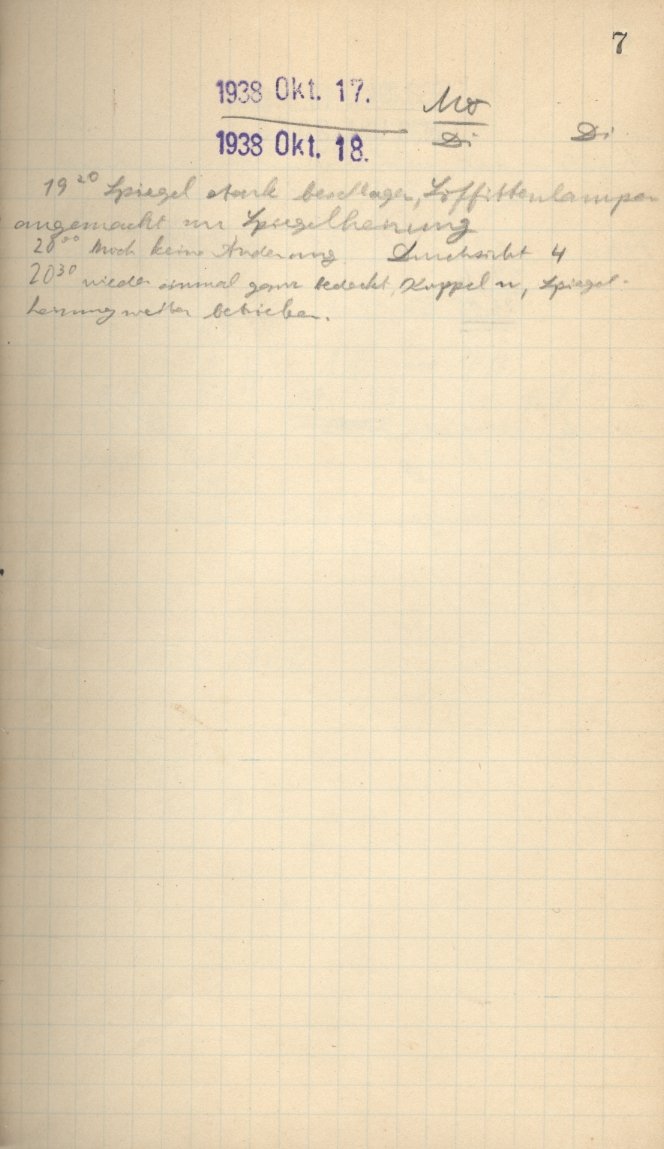 7
1938 Okt. 17. Mo
1938 Okt. 18. Di Di
19²⁰ Spiegel stark beschlagen, Soffittenlampen
angemacht zur Spiegelheizung
20⁰⁰ Noch keine Änderung Durchsicht 4
20³⁰ wieder einmal ganz bedeckt, Kuppel u, Spiegel-
heizung weiter betrieben.